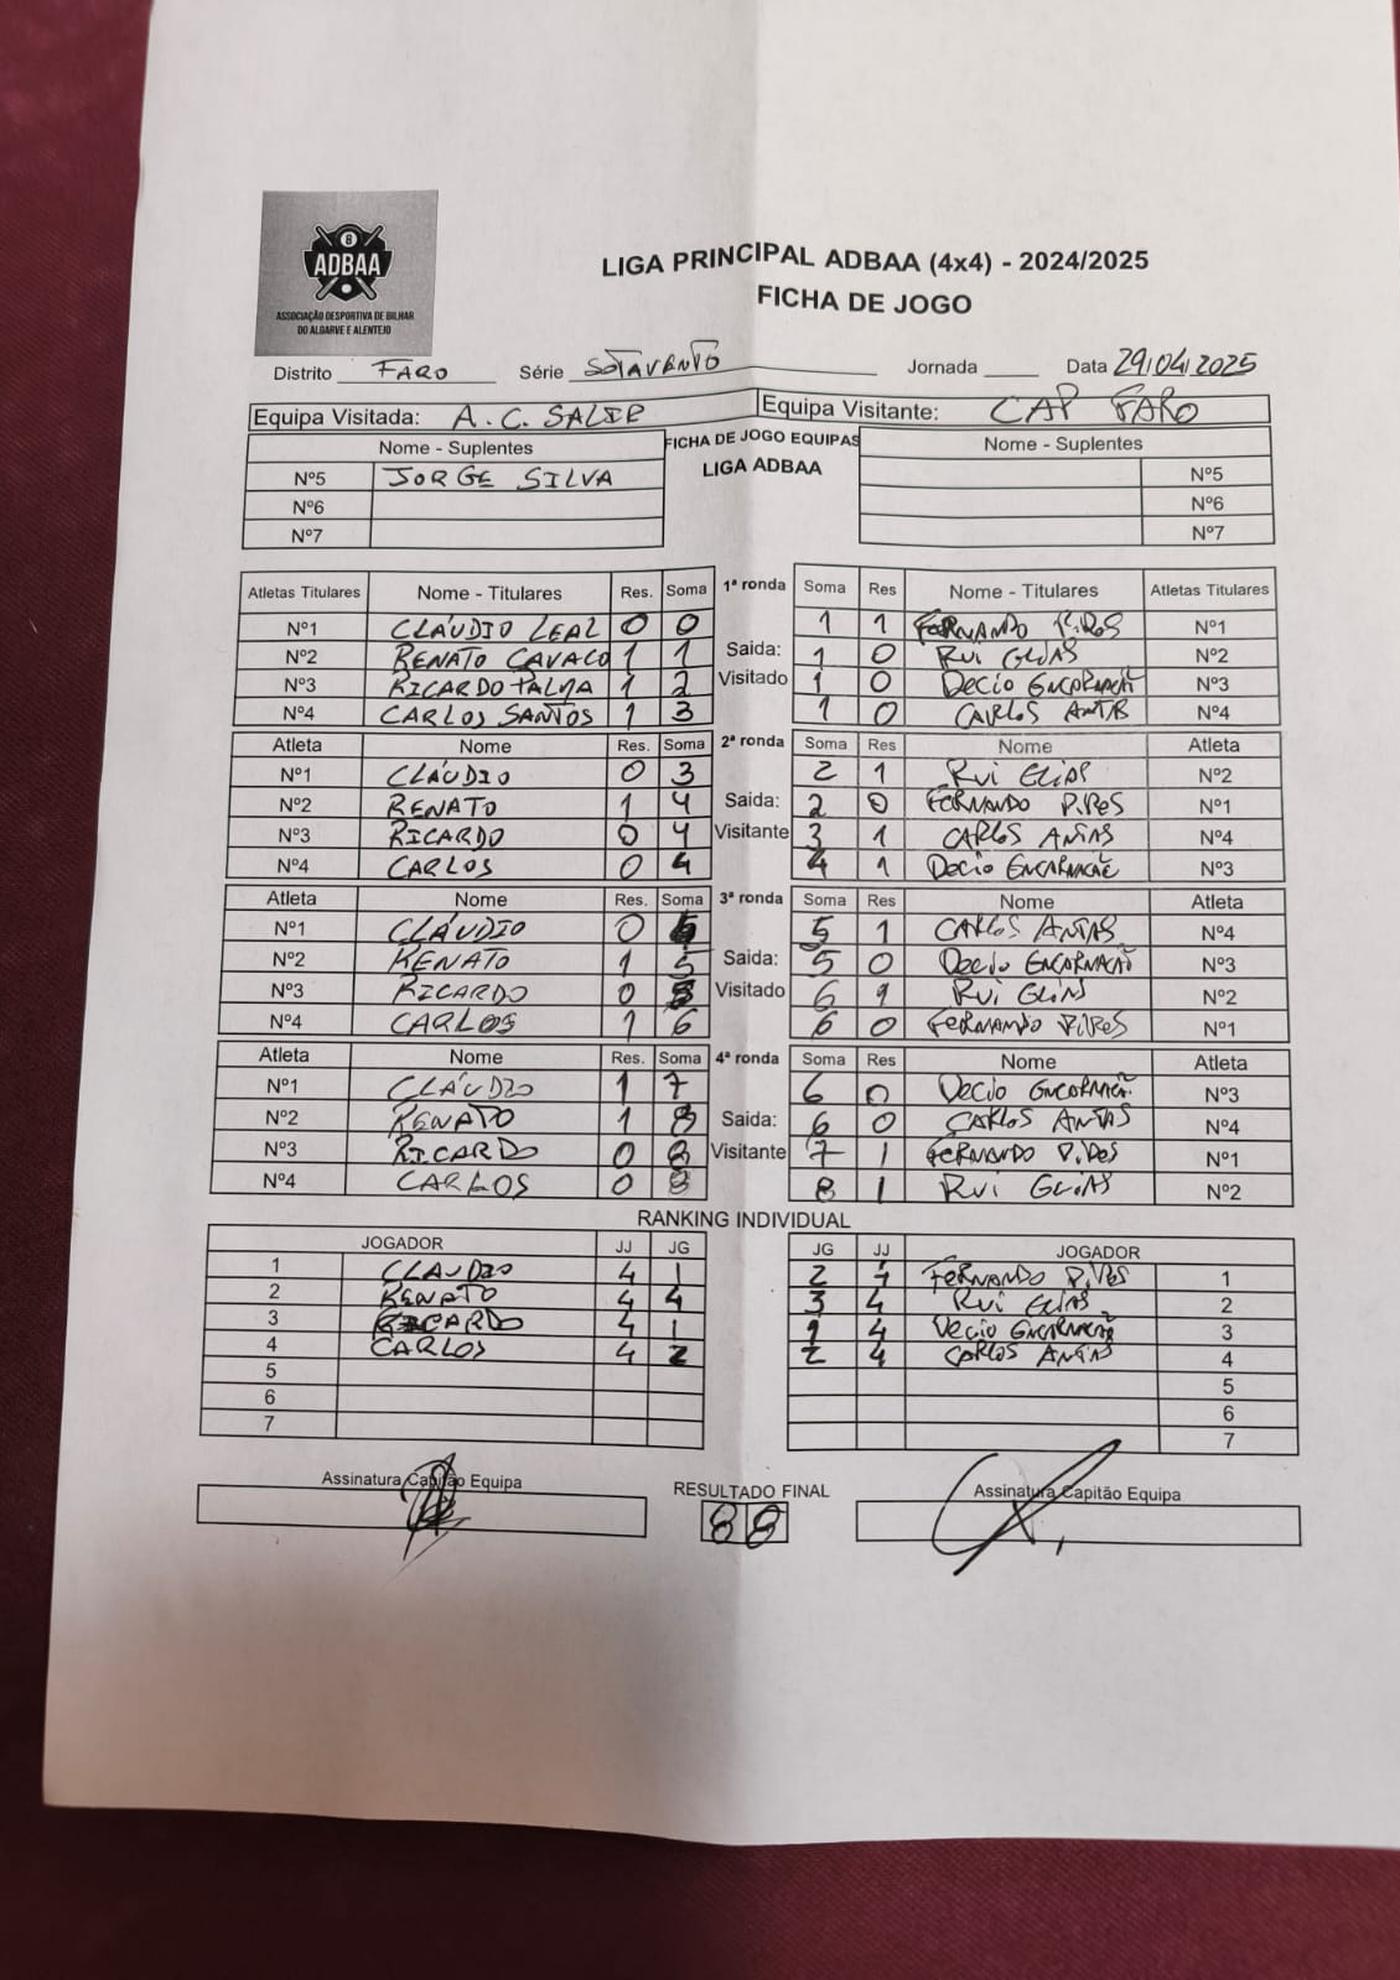 8
ADBAA
ASSOCIAÇÃO DESPORTIVA DE BILHAR
DO ALGARVE E ALENTEJO
LIGA PRINCIPAL ADBAA (4x4) - 2024/2025
FICHA DE JOGO
Distrito FARO Série SOTAVENTO Jornada Data 29/04/2025
Equipa Visitada: A.C. SALIR Equipa Visitante: CAP FARO
Nome - Suplentes FICHA DE JOGO EQUIPAS Nome - Suplentes
Nº5 JORGE SILVA LIGA ADBAA Nº5
Nº6 Nº6
Nº7 Nº7
Atletas Titulares Nome - Titulares Res. Soma 1ª ronda Soma Res Nome - Titulares Atletas Titulares
Nº1 CLÁUDIO LEAL 0 0 1 1 FERNANDO PIRES Nº1
Nº2 RENATO CAVACO 1 1 Saida: 1 0 RUI ELIAS Nº2
Nº3 RICARDO PALMA 1 2 Visitado 1 0 DECIO ENCARNAÇÃO Nº3
Nº4 CARLOS SANTOS 1 3 1 0 CARLOS ANTAS Nº4
Atleta Nome Res. Soma 2ª ronda Soma Res Nome Atleta
Nº1 CLÁUDIO 0 3 2 1 RUI ELIAS Nº2
Nº2 RENATO 1 4 Saida: 2 0 FERNANDO PIRES Nº1
Nº3 RICARDO 0 4 Visitante 3 1 CARLOS ANTAS Nº4
Nº4 CARLOS 0 4 4 1 DECIO ENCARNAÇÃO Nº3
Atleta Nome Res. Soma 3ª ronda Soma Res Nome Atleta
Nº1 CLÁUDIO 0 5 1 CARLOS ANTAS Nº4
Nº2 RENATO 1 5 Saida: 5 0 DECIO ENCARNAÇÃO Nº3
Nº3 RICARDO 0 5 Visitado 6 1 RUI ELIAS Nº2
Nº4 CARLOS 1 6 6 0 FERNANDO PIRES Nº1
Atleta Nome Res. Soma 4ª ronda Soma Res Nome Atleta
Nº1 CLÁUDIO 1 7 6 0 DECIO ENCARNAÇÃO Nº3
Nº2 RENATO 1 8 Saida: 6 0 CARLOS ANTAS Nº4
Nº3 RICARDO 0 8 Visitante 7 1 FERNANDO PIRES Nº1
Nº4 CARLOS 0 8 8 1 RUI ELIAS Nº2
RANKING INDIVIDUAL
JOGADOR JJ JG JG JJ JOGADOR
1 CLAUDIO 4 1 2 4 FERNANDO PIRES 1
2 RENATO 4 4 3 4 RUI ELIAS 2
3 RICARDO 4 1 1 4 DECIO ENCARNAÇÃO 3
4 CARLOS 4 2 2 4 CARLOS ANTAS 4
5 5
6 6
7 7
Assinatura Capitão Equipa RESULTADO FINAL Assinatura Capitão Equipa
8 8